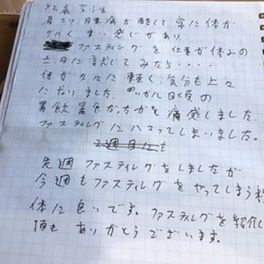 肩こり 腰痛が酷くて 常に体が
ダルく重い感じがあり
ファスティングを仕事が休みの
土日に試してみたら・・・・
体がクルに軽く、気分も上々
になりました
暴飲暴食だったかを痛感しました。
ファスティングにハマってしまいました。
先週ファスティングをしましたが
今週もファスティングをやってしまう
体に良いです。ファスティングを紹介し
頂き ありがとうございます。